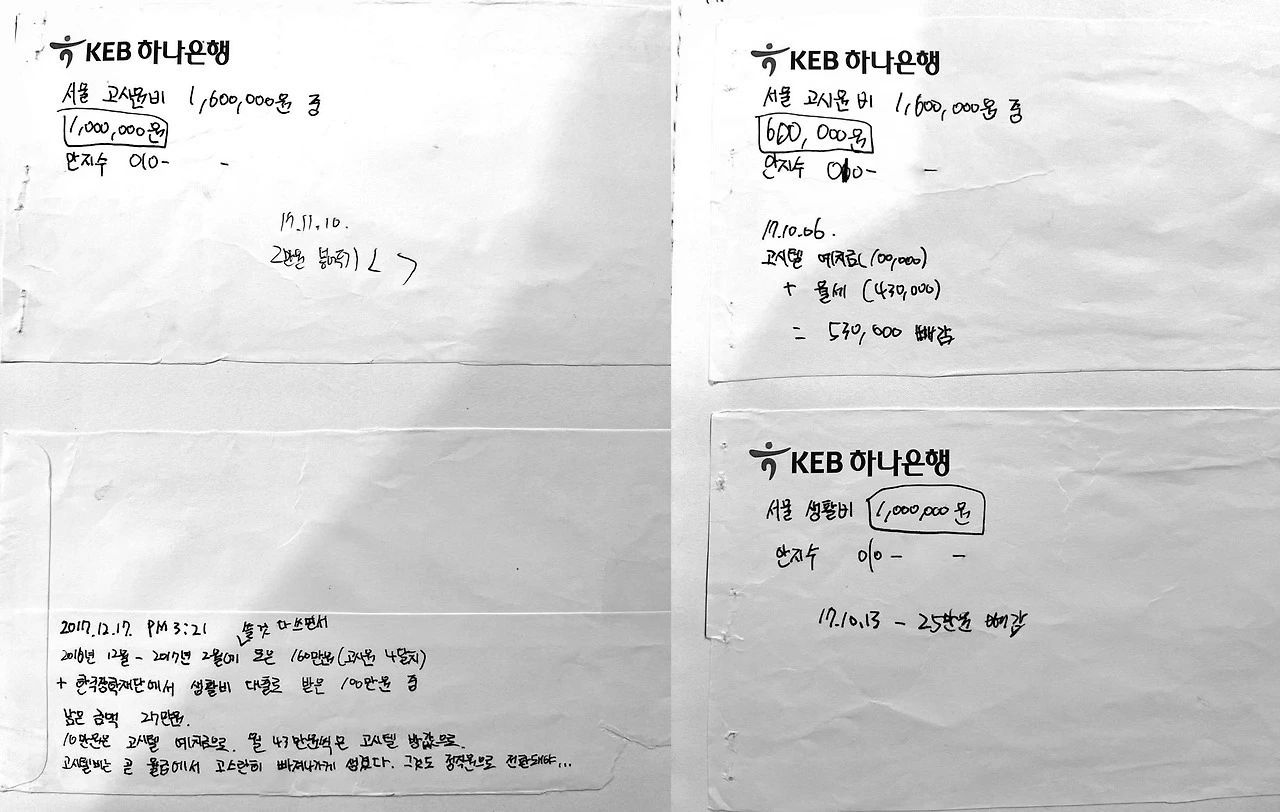 KEB 하나은행
서울 고시원비 1,600,000원 중
1,000,000원
안지수 010- -
17.11.10.
2만원
KEB 하나은행
서울 고시원비 1,600,000원 중
600,000원
안지수 010- -
17.10.06.
고시텔 예치금(100,000)
+ 월세 (430,000)
= 530,000 빼감
2017.12.17. PM 3:21 쓸 것 다 쓰면서
2016년 12월 - 2017년 2월에 모은 160만원(고시원 4달치)
+ 한국장학재단에서 생활비 대출로 받은 100만원 중
남은 금액 27만원.
10만원은 고시텔 예치금으로. 월 43만원씩은 고시텔 방값으로.
고시텔비는 곧 월급에서 고스란히 빠져나가게 생겼다. 그것도 정직원으로 전환돼야...
KEB 하나은행
서울 생활비 1,000,000원
안지수 010- -
17.10.13 - 25만원 빼감